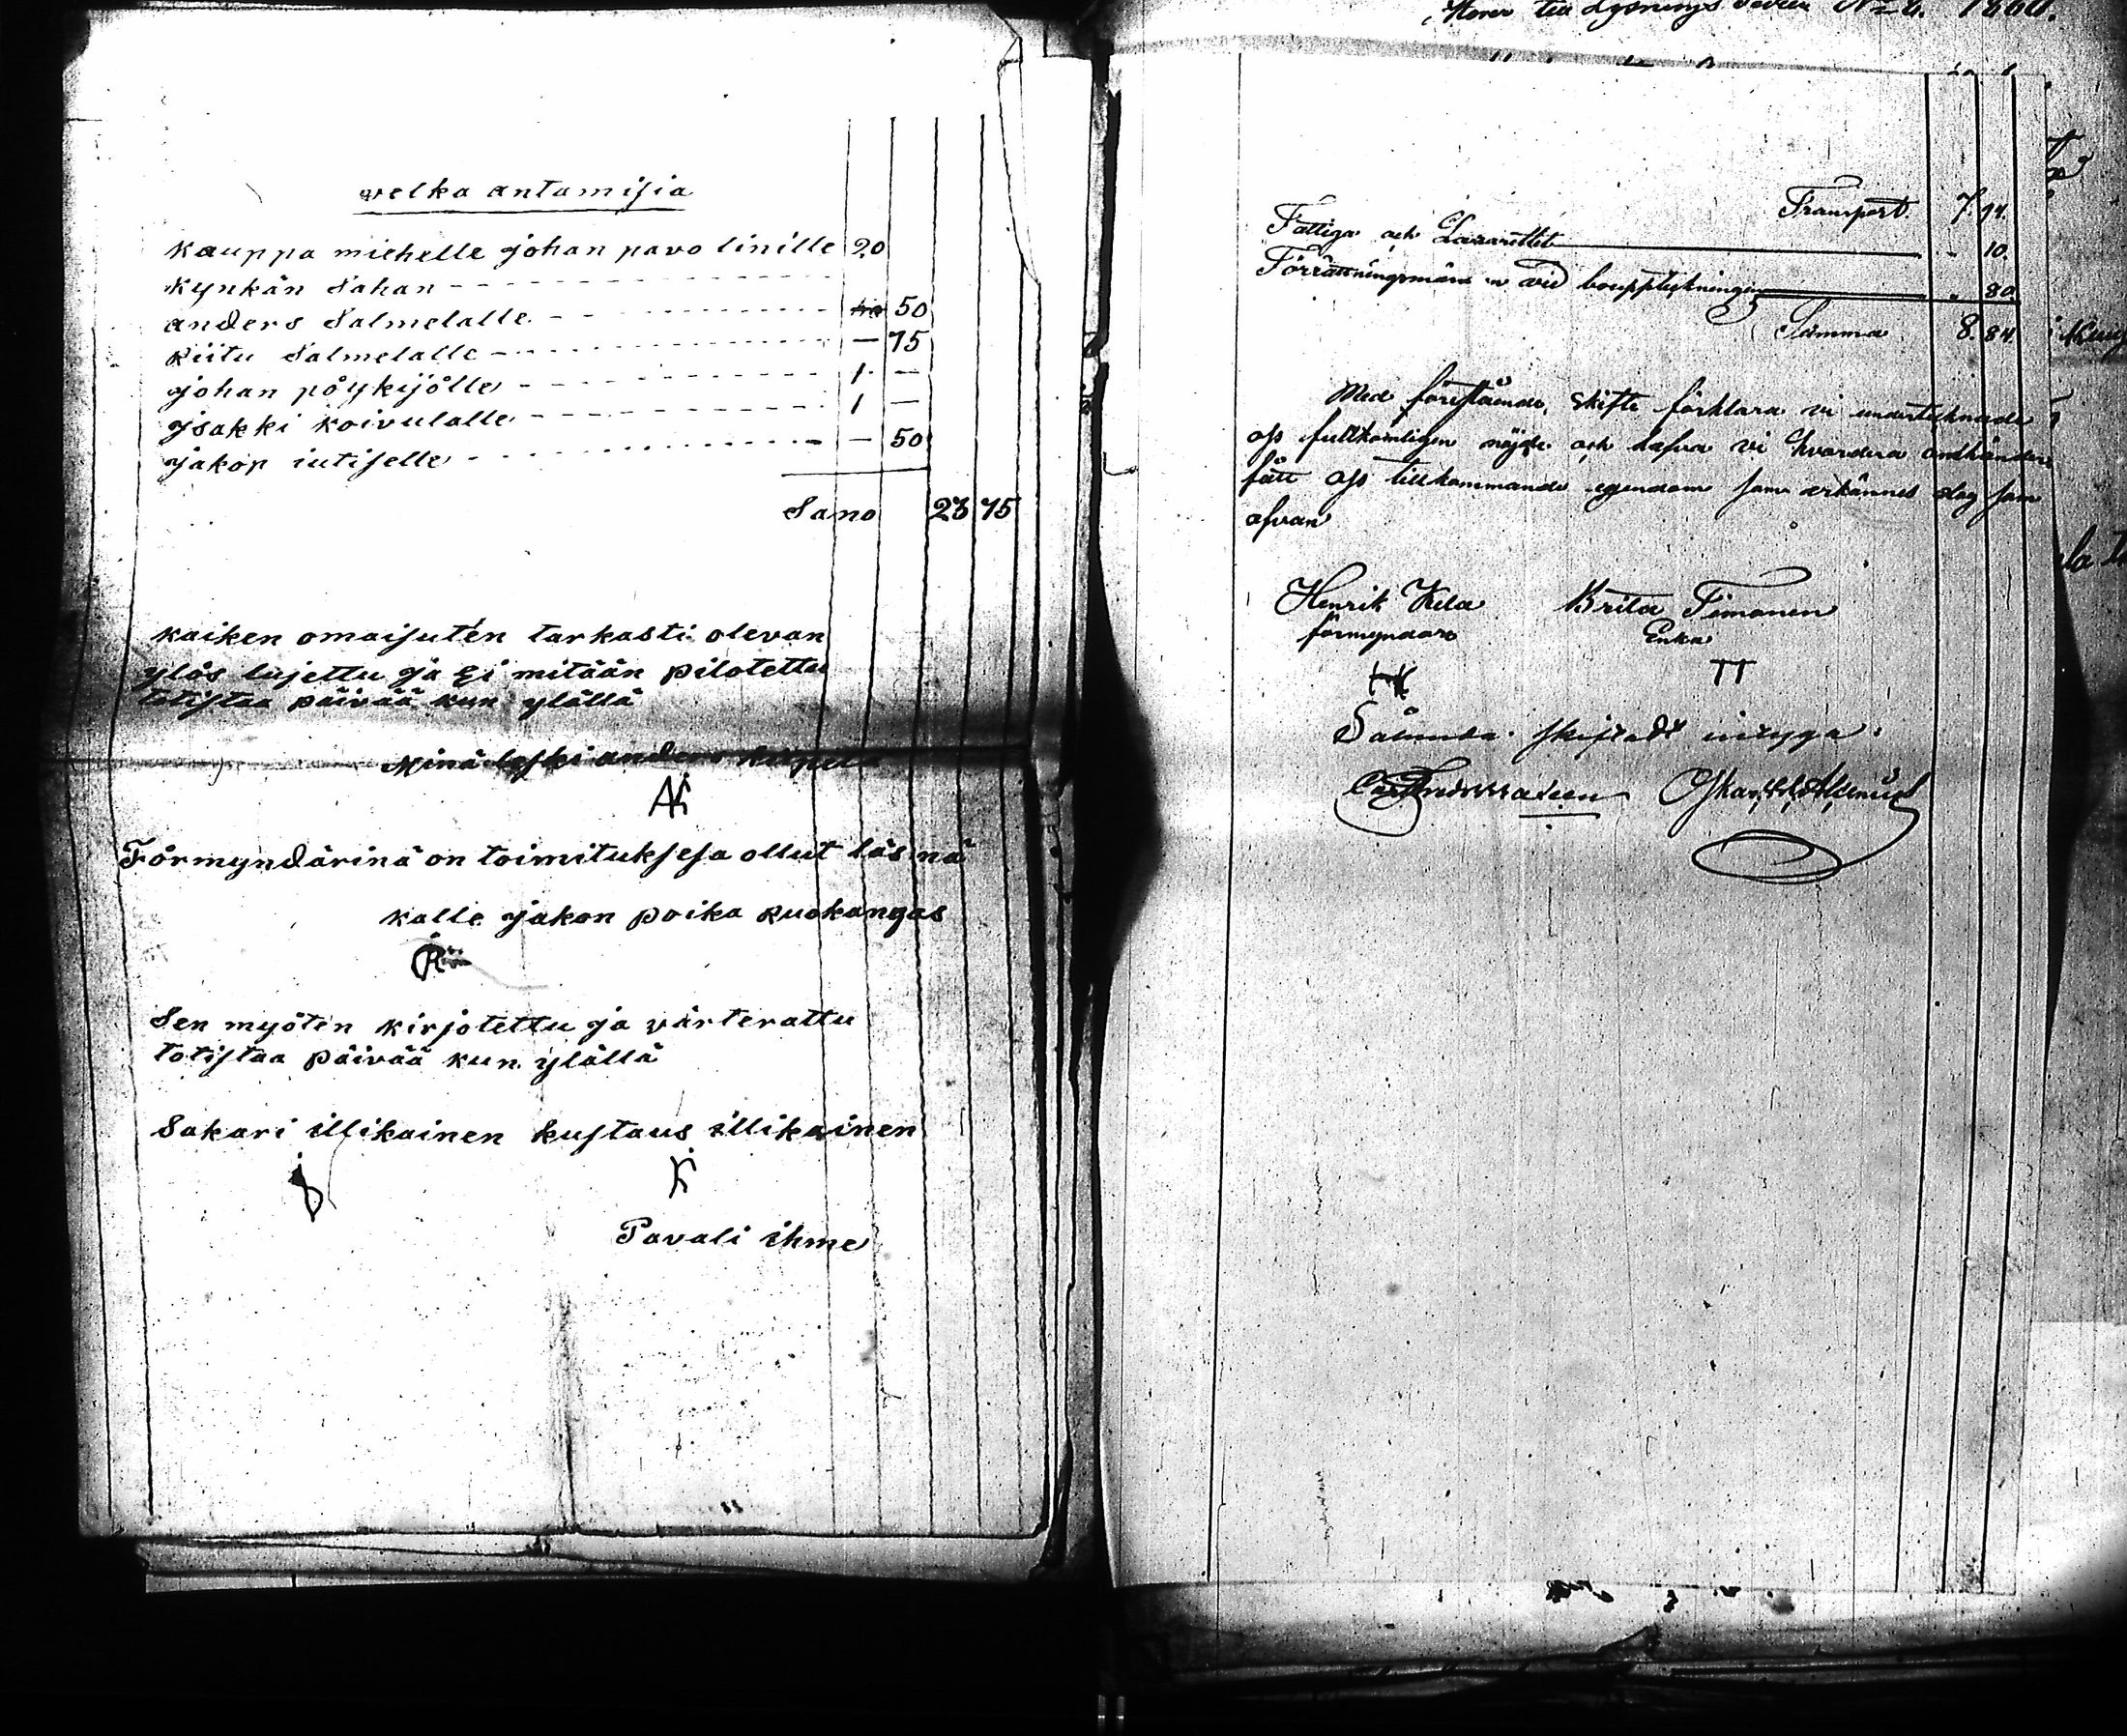 velka antamisia
kauppa miehelle johan pavo linille 20
kynkän Sahan - - - - -
anders Salmelalle - - - - - 50
kiitu Salmelalle - - - - - — 75
johan pöykijölle - - - - - 1 —
jsakki koivulalle - - - - - 1 —
jakop iutiselle - - - - - — 50
Sano 23 75
kaiken omaisuten tarkasti olevan
ylös lujettu ja Ei mitään pilotettu
totistaa päivää kun ylällä
Minä leski anders
AK
Förmyndärinä on toimituksesa ollut läsnä
kalle jakon poika Ruokangas
Sen myöten kirjotettu ja värterattu
totistaa päivää kun ylällä
Sakari illikainen kustaus illikainen
K
Pavali ihme
Transport 7 94.
Fattiga och Lazarettet " 10.
Förrättningsmän vid bouppteckningen " 80.
Summa 8. 84.
Med förestående skifte förklara vi undertecknade
oss fullkomligen nöjde och hafva vi hvardera
fått oss tillkommande egendom som erkännes dag som
ofvan
Henrik Kela Brita Timonen
förmyndare Enka
HK TT
Sålunda skiftadt intyga: